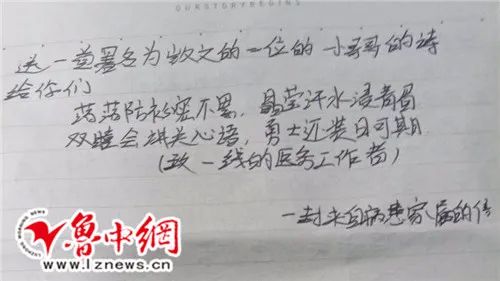 OURSTORYBEGINS
送一首署名为散文的一位的小哥哥的诗
给你们
防衫密不，晶莹汗水浸眉
双瞳会关心语，勇士装日可期
（致一线的医务工作者）
一封来自病患家属的信
鲁中網
www.lznews.cn